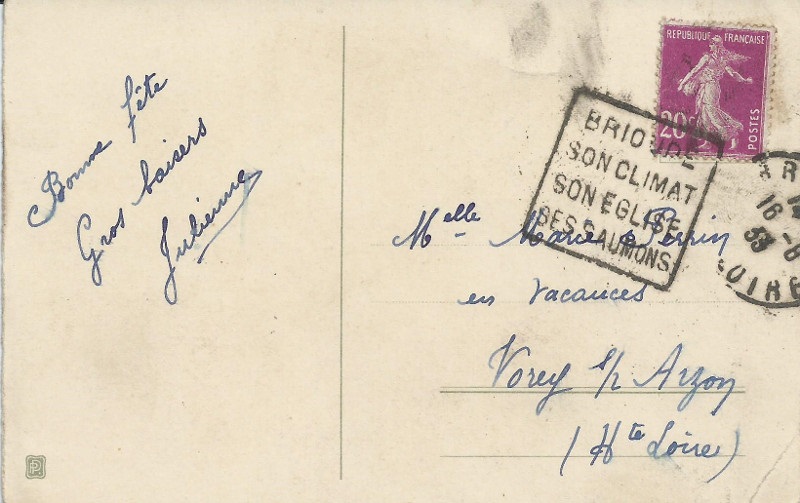 Bonne fête
Gros baisers
Julienne
REPUBLIQUE FRANÇAISE
20c
POSTES
BRIOUDE
SON CLIMAT
SON EGLISE
SES SAUMONS
16 -8
33
LOIRE
Melle Marie Perrin
en vacances
Vorey s/ Arzon
(Hte Loire)